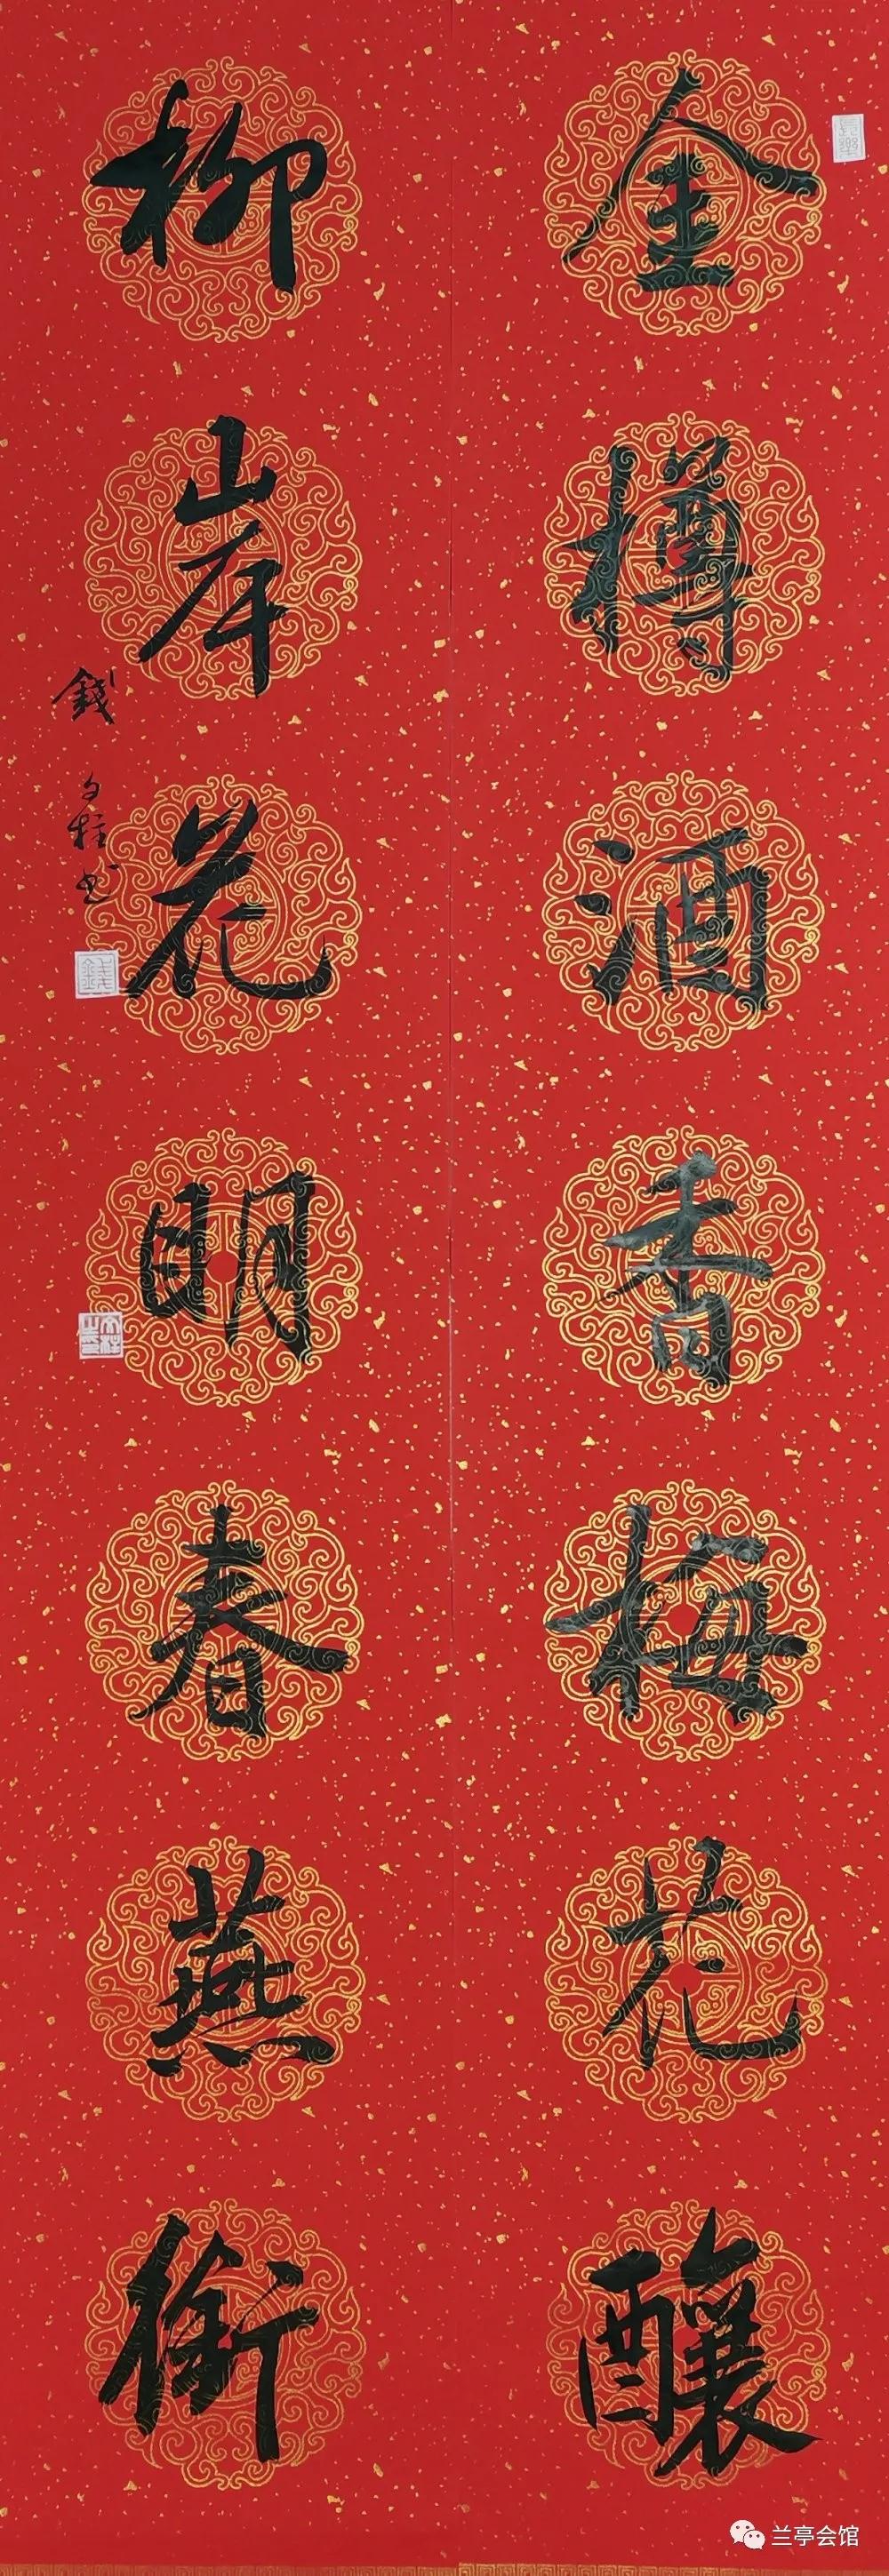 金樽酒香梅花釀
柳岸花明春燕銜
錢文柱书
兰亭会馆